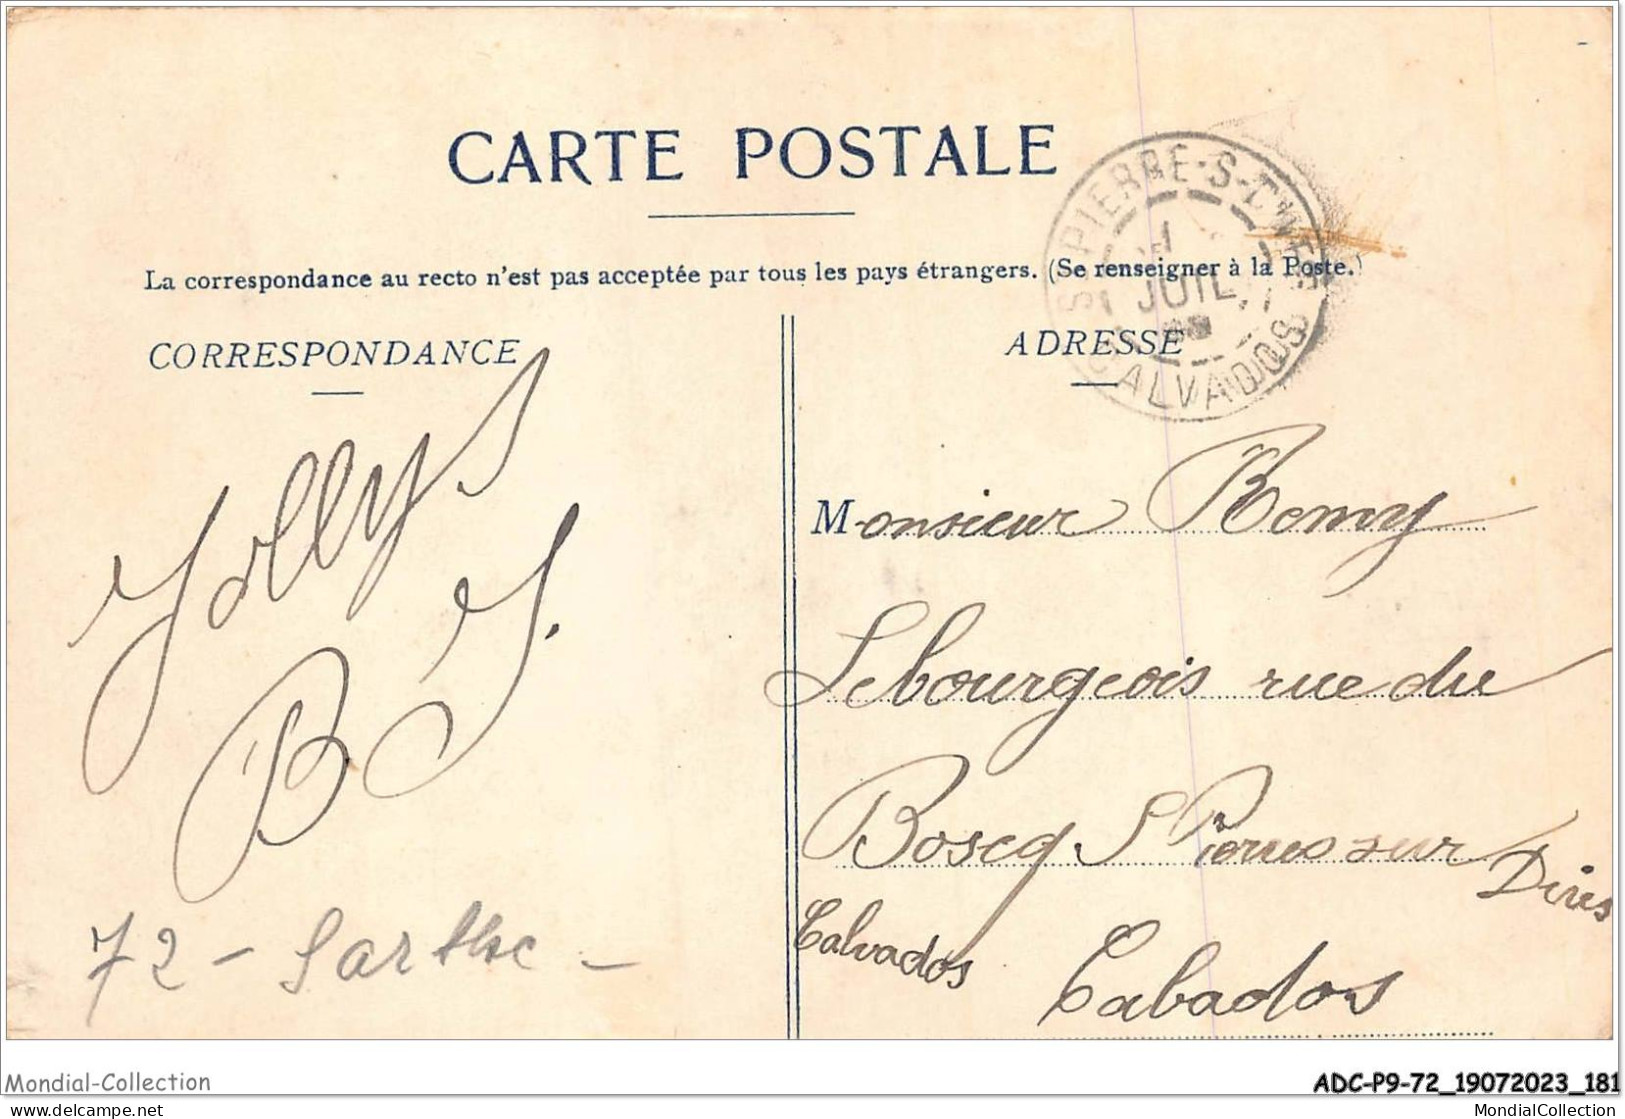 CARTE POSTALE
La correspondance au recto n'est pas acceptée par tous les pays étrangers. (Se renseigner à la Poste.)
CORRESPONDANCE
ADRESSE
PIERRE-S-DIVES
1
JUIL
CALVADOS
Monsieur Remy
Lebourgeois rue du
Boscq S Pierres sur
Dives
Calvados
Cabados
Jollys
B J.
72 - Sarthe -
Mondial-Collection
ADC-P9-72_19072023_181
delcampe.net
MondialCollection